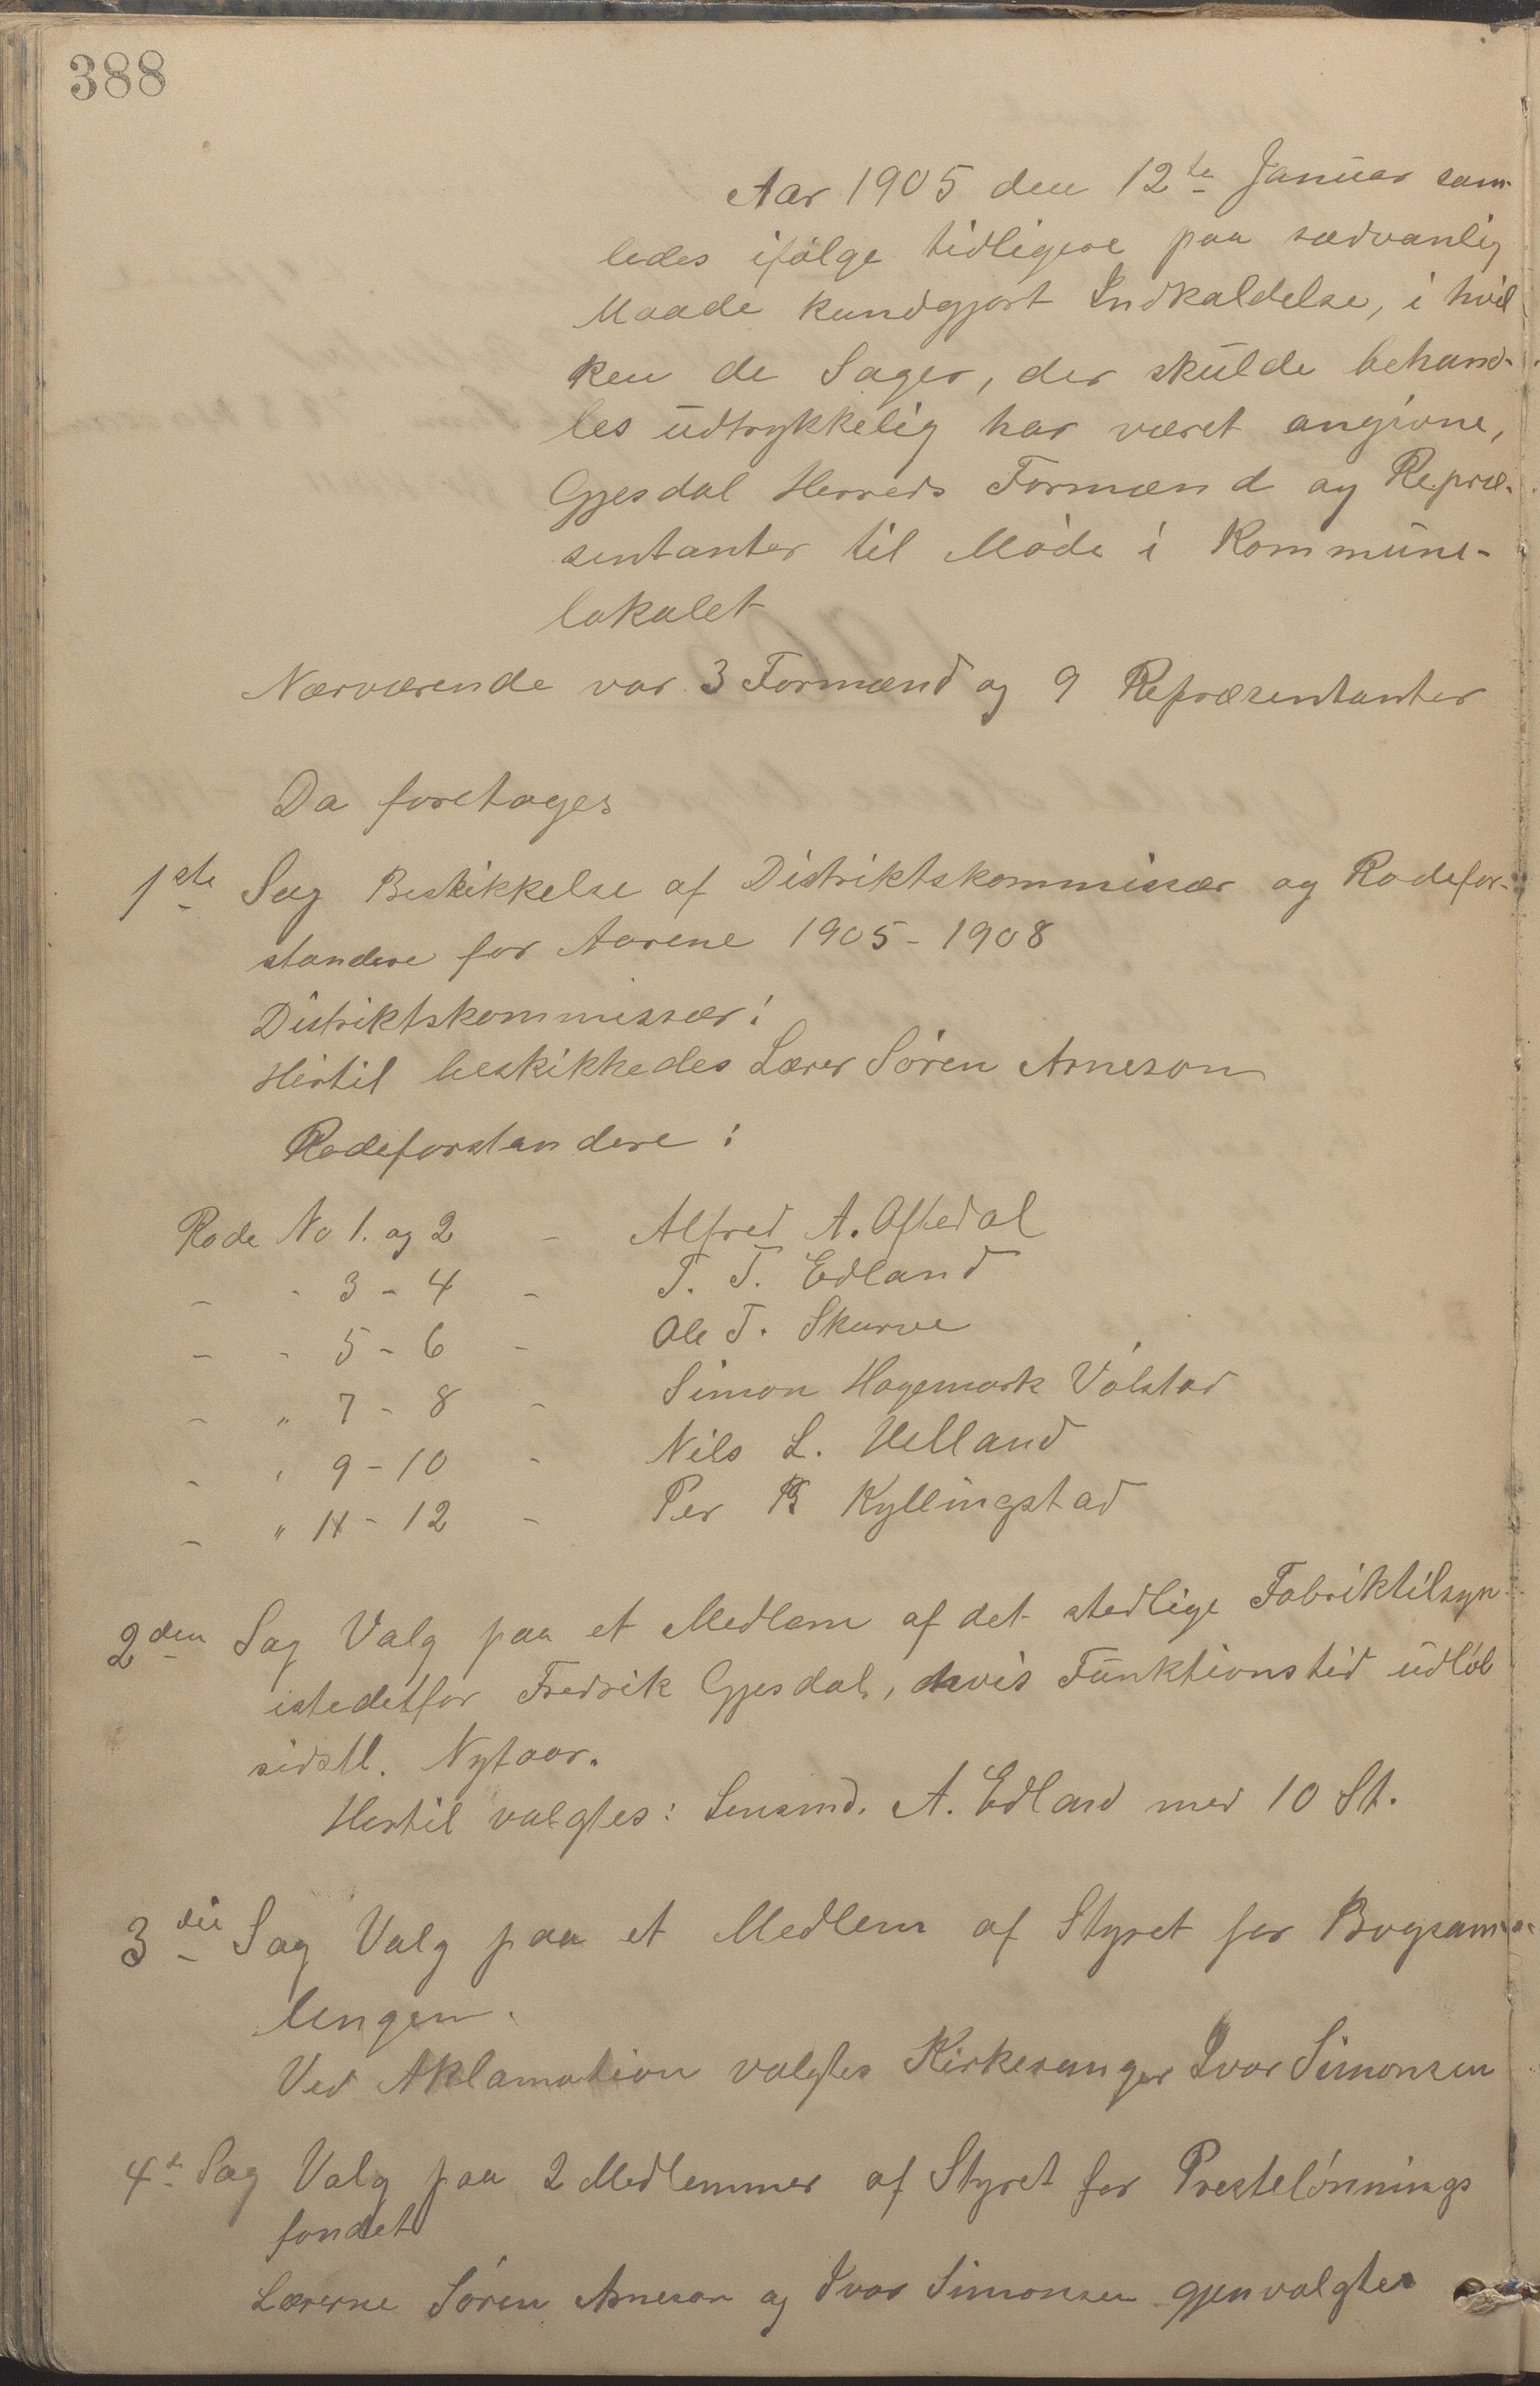 388
Aar 1905 den 12te Januar sam-
ledes ifølge tidligere paa sædvanlig
Maade kundgjort Indkaldelse, i hvil
ken de Sager, der skulde behand-
les udtrykkelig har været angivne,
Gjesdal Herreds Formænd og Repræ-
sentanter til Møde i Kommune-
lokalet
Nærværende var 3 Formænd og 9 Repræsentanter
Da foretages
1ste Sag Beskikkelse af Distriktskommissær og Rodefor-
standere for Aarene 1905-1908
Distriktskommissær:
Hertil beskikkedes Lærer Sören Arneson
Rodeforstandere:
Rode No 1. og 2 - Alfred A. Oftedal
- - 3 - 4 - T. T. Edland
- - 5 - 6 - Ole T. Skurve
- " 7 - 8 - Simon Hagemark Vølstad
- " 9 - 10 - Nils L. Helland
- " 11 - 12 - Per B Kyllingstad
2den Sag Valg paa et Medlem af det stedlige Fabriktilsyn
istedetfor Fredrik Gjesdal, hvis Funktionstid udløb
sidstl. Nytaar.
Hertil valgtes: Lensmd. A. Edland med 10 St.
3die Sag Valg paa et Medlem af Styret for Bogsam-
lingen.
Ved Aklamation valgtes Kirkesanger Ivar Simonsen
4de Sag Valg paa 2 Medlemmer af Styret for Prestelønnings
fondet
Lærerne Sören Arneson og Ivar Simonsen gjenvalgtes